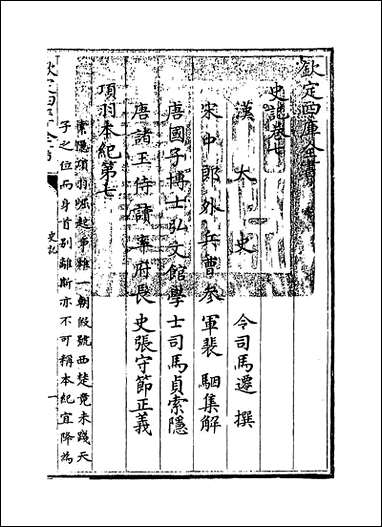 欽定四庫全書
史記卷七
漢太史令司馬遷撰
宋中郎外兵曹參軍裴駰集解
唐國子博士弘文館學士司馬貞索隱
唐諸王侍讀率府長史張守節正義
項羽本紀第七
索隱項羽崛起爭雄一朝假號西楚竟未踐天
子之位而身首别離斯亦不可稱本紀宜降為
史記
一